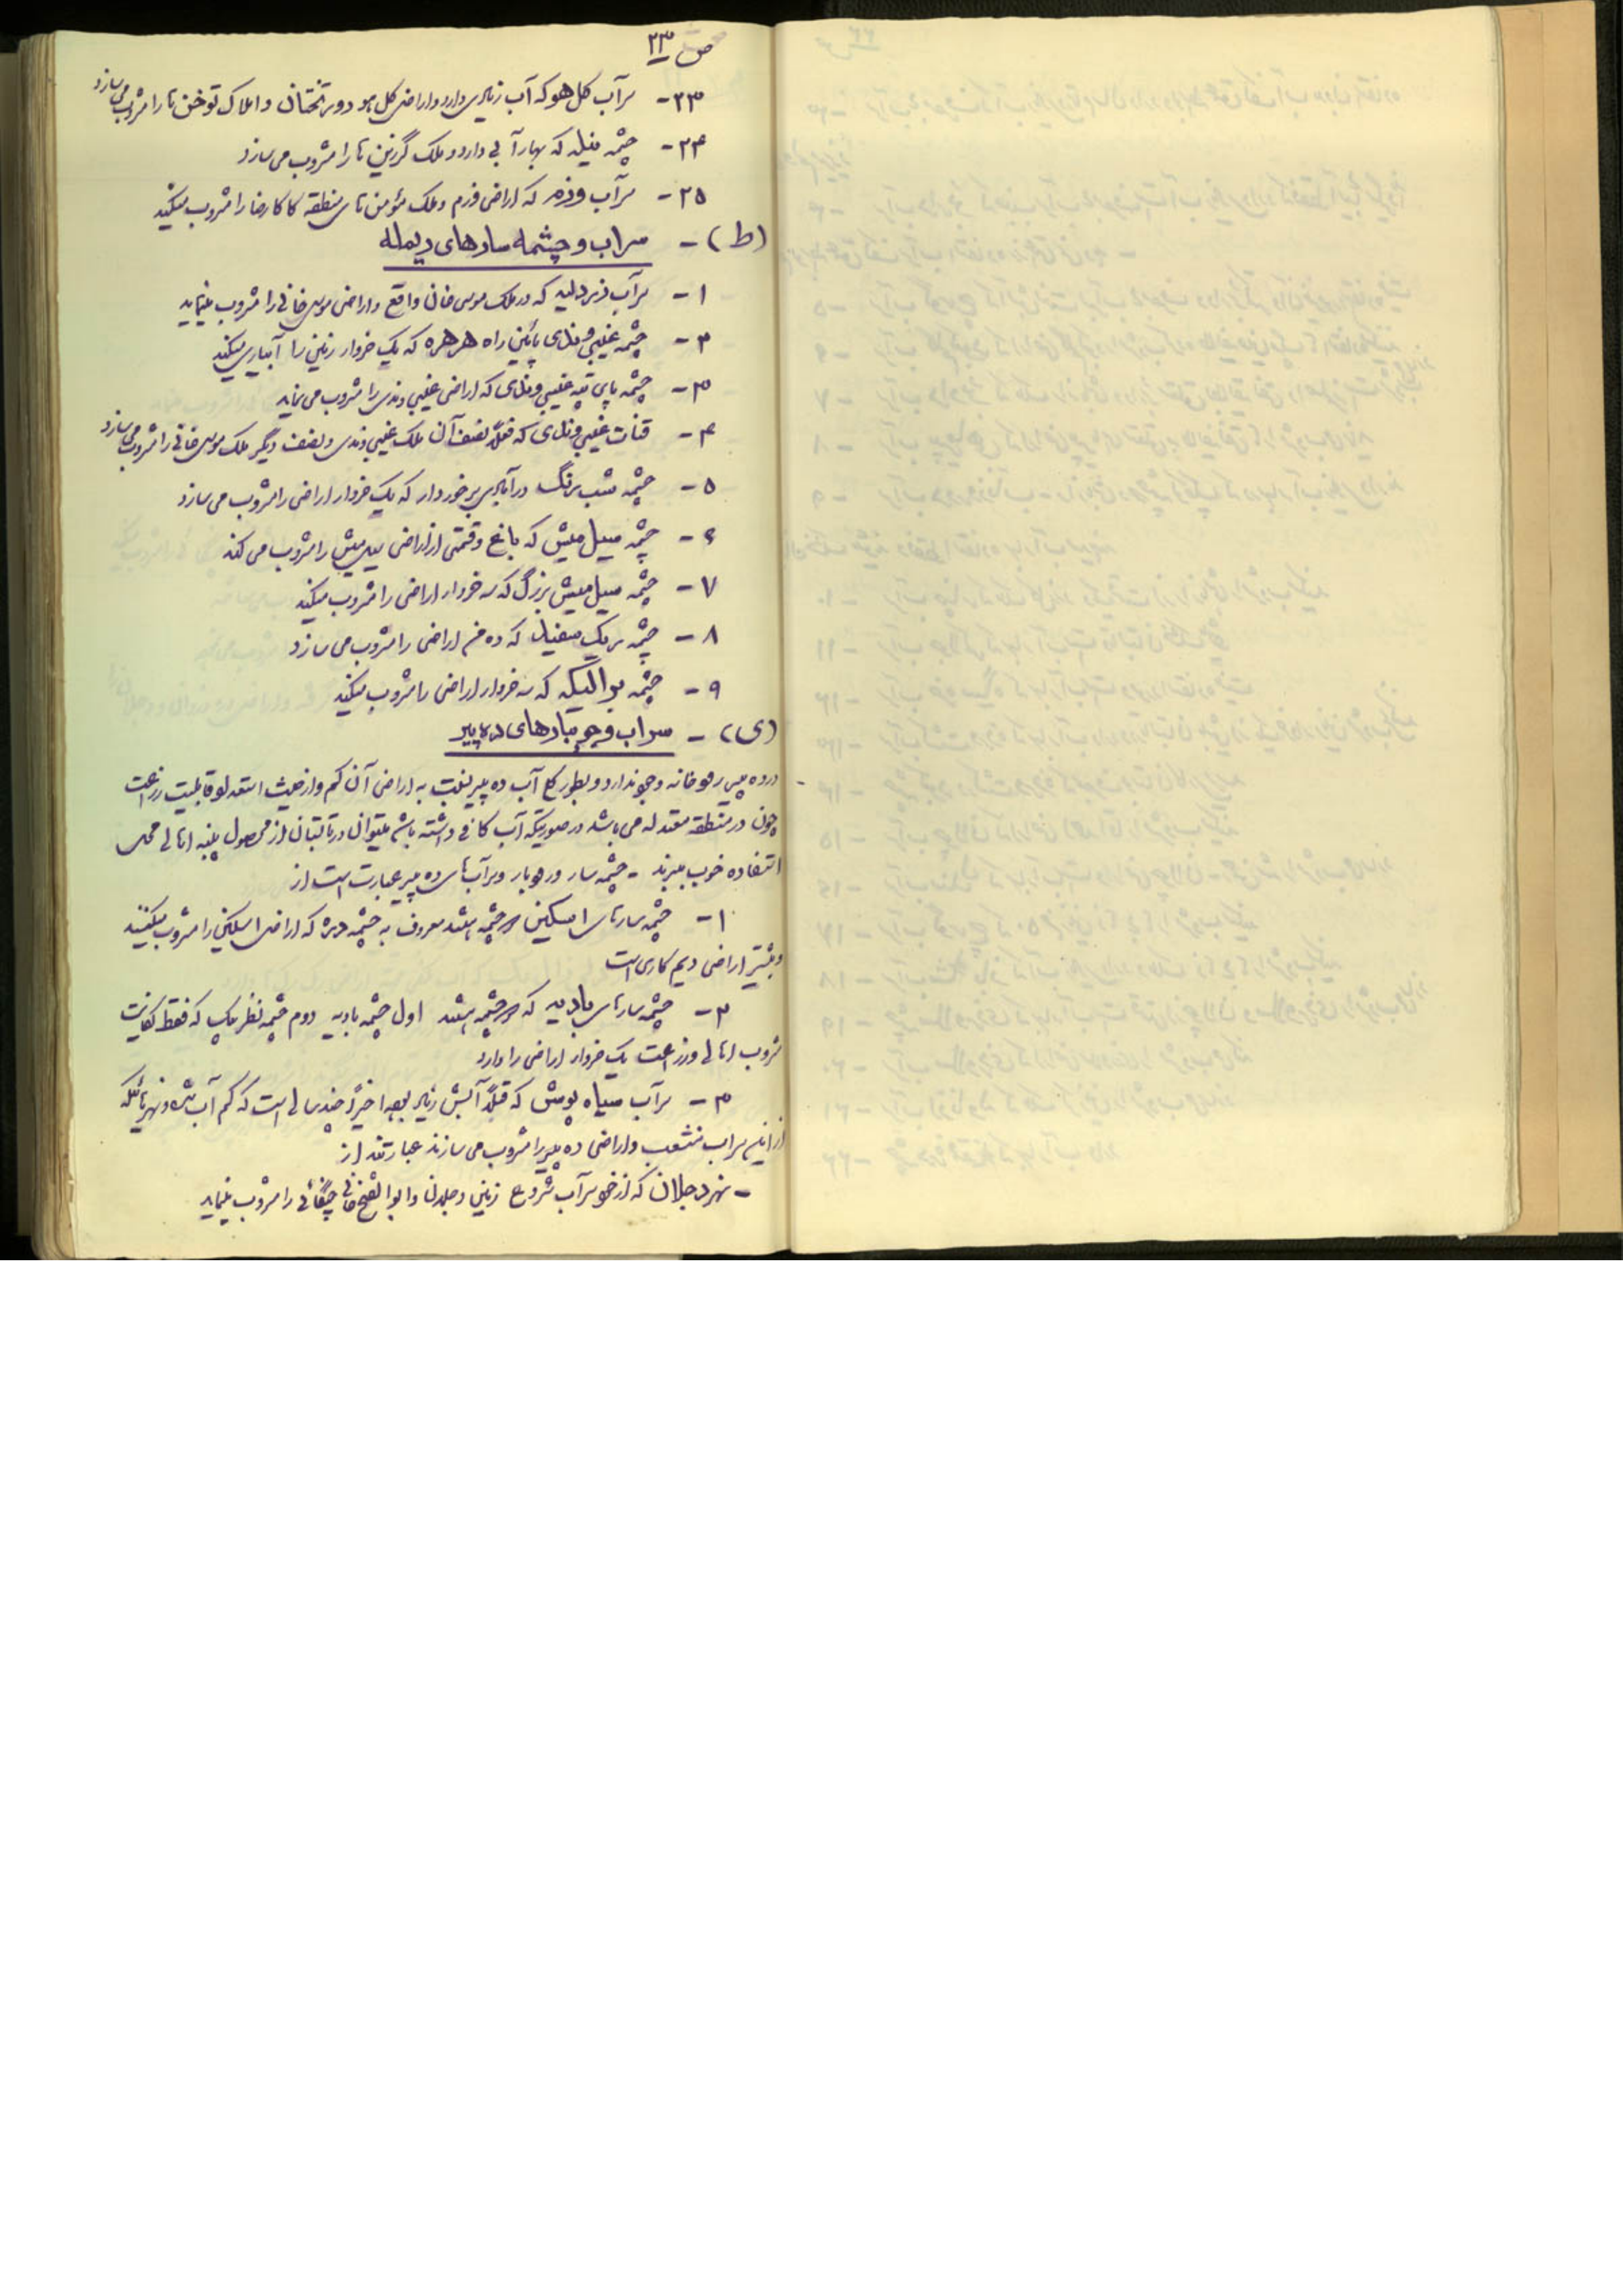 ص ۲۳
۲۳- سرآب کل هو که آب زیادی دارد و اراضی کل هو و دو سر تختان و املاک توخن ها را مشروب می سازد
۲۴- چشمه که بهار آبی دارد و ملک گرزین ها را مشروب می سازد
۲۵- سرآب وزم که اراضی وزم و ملک مؤمن های منطقه کاکارضا را مشروب میکند
(ط) - سراب و چشمه سارهای دیمله
۱- سرآب که در ملک موسی خان واقع و اراضی موسی خانی را مشروب مینماید
۲- چشمه غیبی وندی پائین راه هرهره که یک خروار زمین را آبیاری میکند
۳- چشمه پای تپه غیبی وندی که اراضی غیبی وندی را مشروب می نماید
۴- قنات غیبی وندی که فعلا نصف آن ملک غیبی وندی و نصف دیگر ملک موسی خانی را مشروب می سازد
۵- چشمه شب رنگ در آبادی برخوردار که یک خروار اراضی را مشروب می سازد
۶- چشمه سیل میش که باغ و قسمتی از اراضی سیل میش را مشروب می کند
۷- چشمه سیل میش بزرگ که سه خروار اراضی را مشروب میکند
۸- چشمه سریک سفید که ده من اراضی را مشروب می سازد
۹- چشمه که سه خروار اراضی را مشروب میکند
(ی) - سراب و جویبارهای ده پیر
در ده پیر رودخانه وجود ندارد و بطور کلی آب ده پیر نسبت به اراضی آن کم و از حیث استعداد و قابلیت زراعت
چون در منطقه معتدله می باشد در صورتیکه آب کافی داشته باشد میتوان در تابستان از محصول پنبه اهالی محل
استفاده خوب ببرند - چشمه سار و جویبار و سرآب های ده پیر عبارت است از
۱- چشمه سارهای اسکین دو چشمه هستند معروف به چشمه دره که اراضی اسکین را مشروب میکنند
و بیشتر اراضی دیم کاری است
۲- چشمه سارهای بادیه که دو چشمه هستند اول چشمه بادیه دوم چشمه نظر بیک که فقط کفایت
شروب اهالی و زراعت یک خروار اراضی را دارد
۳- سرآب سیاه پوش که قبلا آبش زیاد بوده اخیرا چند سالی است که کم آب شده و نهرهائیکه
از این سراب منشعب و اراضی ده پیر را مشروب می سازند عبارتند از
- نهر دجلان که از خود سرآب شروع زمین دجلان و ابوالفتح خانی چگائی را مشروب مینماید